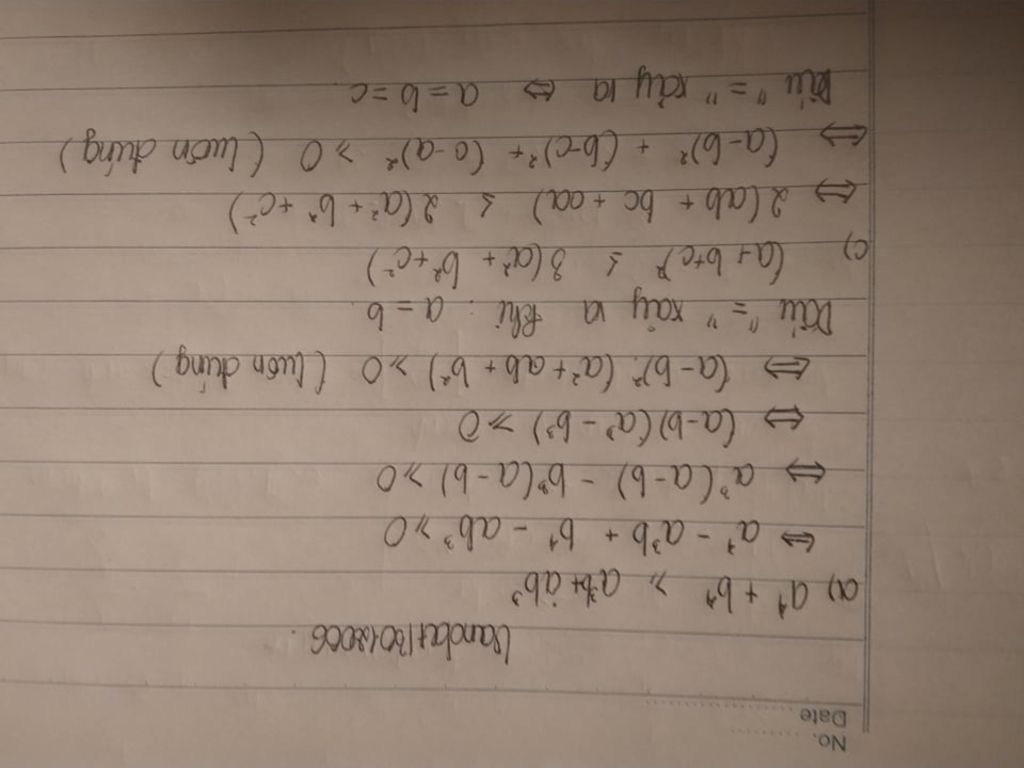 No.
Date
Vandat13012006.
a) a⁴ + b⁴ ≥ a³b + ab³
⇔ a⁴ - a³b + b⁴ - ab³ ≥ 0
⇔ a³(a-b) - b³(a-b) ≥ 0
⇔ (a-b)(a³ - b³) ≥ 0
⇔ (a-b)². (a² + ab + b²) ≥ 0 (luôn đúng)
Dấu "=" xảy ra khi : a = b.
c) (a+b+c)² ≤ 3(a² + b² + c²)
⇔ 2(ab + bc + ca) ≤ 2(a² + b² + c²)
⇔ (a-b)² + (b-c)² + (c-a)² ≥ 0 (luôn đúng)
Dấu "=" xảy ra ⇔ a = b = c.